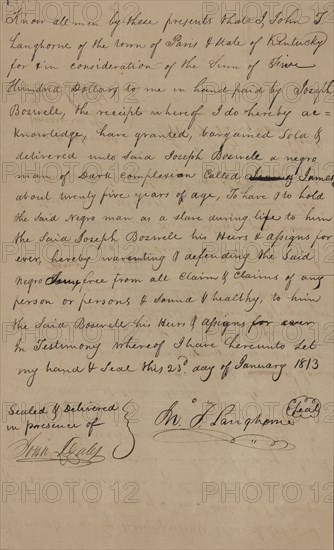 Know all men by these presents that I, John T
Langhorne of the town of Paris & State of Kentucky
for & in consideration of the Sum of Five
Hundred Dollars to me in hand paid by Joseph
Boswele, the receipts whereof I do hereby ac=
knowledge, have granted, bargained Sold &
delivered unto Said Joseph Boswele a negro
man of Dark complexion Called James
about twenty five years of age, To have & to hold
the Said Negro man as a slave during life to him
the Said Joseph Boswele his Heirs & Assigns for
ever, hereby warenting & defending the Said
Negro free from all Claim & Claims of any
person or persons & Sound & healthy, to him
the Said Boswele his Heirs & Assigns for ever
In Testimony whereof I have hereunto Set
my hand & Seal this 23d. day of January 1813
Sealed & Delivered
in presence of
Jno. T Langhorne (Seal)
PHOTO12